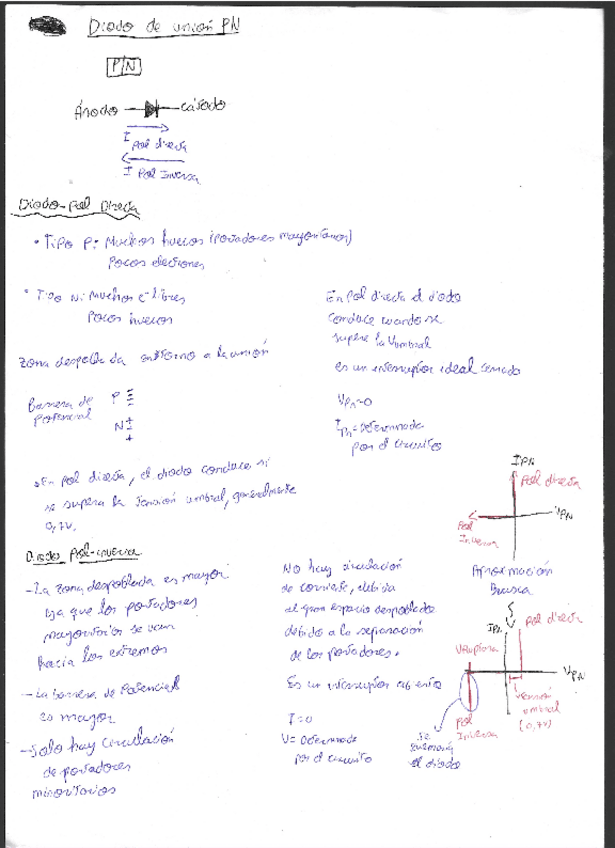 Diodo de unión PN
P|N
Ánodo cátodo
I pol directa
I Pol Inversa
Diodo-Pol Directa
• Tipo P: Muchos huecos (portadores mayoritarios)
Pocos electrones
• Tipo N: Muchos e- libres
Pocos huecos
Zona despoblada entorno a la unión
Barrera de
Potencial
P
N
• En pol directa, el diodo conduce si
se supera la tensión umbral, generalmente
0,7V.
En Pol directa el diodo
conduce cuando se
supere la Vumbral
es un interruptor ideal cerrado
VPn=0
IPn=Determinada
por el circuito
IPN
Pol directa
VPN
Pol
Inversa
Aproximación
Brusca
Diodos Pol-inversa
- La zona despoblada es mayor
ya que los portadores
mayoritarios se van
hacia los extremos
- La barrera de Potencial
es mayor
- Solo hay circulación
de portadores
minoritarios
No hay circulación
de corriente, debida
al gran espacio despoblado
debido a la separación
de los portadores.
Es un interruptor abierto
I=0
V= Determinada
por el circuito
IPn
Pol directa
Vruptura
VPN
Tensión
umbral
(0,7V)
Pol
Inversa
se
quemaría
el diodo